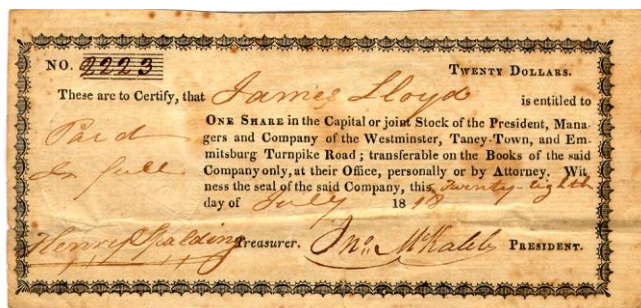 NO. 2223 TWENTY DOLLARS.
These are to Certify, that James Lloyd is entitled to
ONE SHARE in the Capital or joint Stock of the President, Mana
Paid gers and Company of the Westminster, Taney-Town, and Em-
mitsburg Turnpike Road; transferable on the Books of the said
In full Company only, at their Office, personally or by Attorney. Wit
ness the seal of the said Company, this Twenty-eighth
day of July 1818
Henry Spalding Treasurer. Jno. McKaleb PRESIDENT.